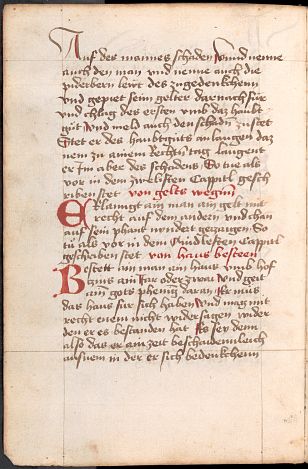 Auf des mannes schaden Und nenne
auch den man und nenne auch die
piderben lewt des zugedenckhenn
und gepiet seim gelter darnach für
und chlag des ersten umb daz haubt
güt Und meld auch den schaden
Stet er des haubtguts an laugen daz
nem zu ainem Rechten tag laugent
er Im aber der schaden So tue als
vor in dem zwelften Capptl gesch
riben stet von gelts wegen
Erklangt ain man ain gelt mit
recht auf dem andern und chan
auf sein phant nyndert gezaigen So
tü als vor in dem Capptul
geschriben stet von haus besteen
Bestett ain man ain haus umb hof
zins ain Iar oder zwai Und geit
ain gots phenig daran Er mus
das haus für sich haben Und mag mit
recht enem nicht wider sagen wider
den er es bestanden hat Es sey dem
also das er ain zeit beschaidennleich
ausnem in der er sich bedenckhenn